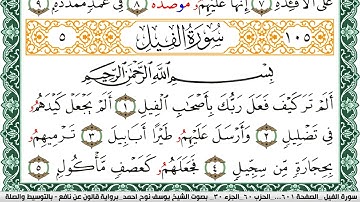 عَلَى اَلْأَفْـِٕدَةِ ٧ إِنَّهَا عَلَيْهِمُۥ مُوصَدَةٌ ٨ فِي عَمَدٍ مُّمَدَّدَةٍ ٩
١٠٥ سُورَةُ الْفِيلِ ٥
بِسْمِ اللَّهِ الرَّحْمَٰنِ الرَّحِيمِ
أَلَمْ تَرَ كَيْفَ فَعَلَ رَبُّكَ بِأَصْحَٰبِ اِلْفِيلِ ١ أَلَمْ يَجْعَلْ كَيْدَهُمُۥ
فِي تَضْلِيلٍ ٢ وَأَرْسَلَ عَلَيْهِمُۥ طَيْرًا أَبَابِيلَ ٣ تَرْمِيهِمُۥ
بِحِجَارَةٍ مِّن سِجِّيلٍ ٤ فَجَعَلَهُمُۥ كَعَصْفٍ مَّأْكُولٍ ٥
سورة الفيل . الصفحة ٦٠١ .. الحزب ٦٠ الجزء ٣٠ . بصوت الشيخ يوسف نوح أحمد برواية قالون عن نافع - بالتوسيط والصلة